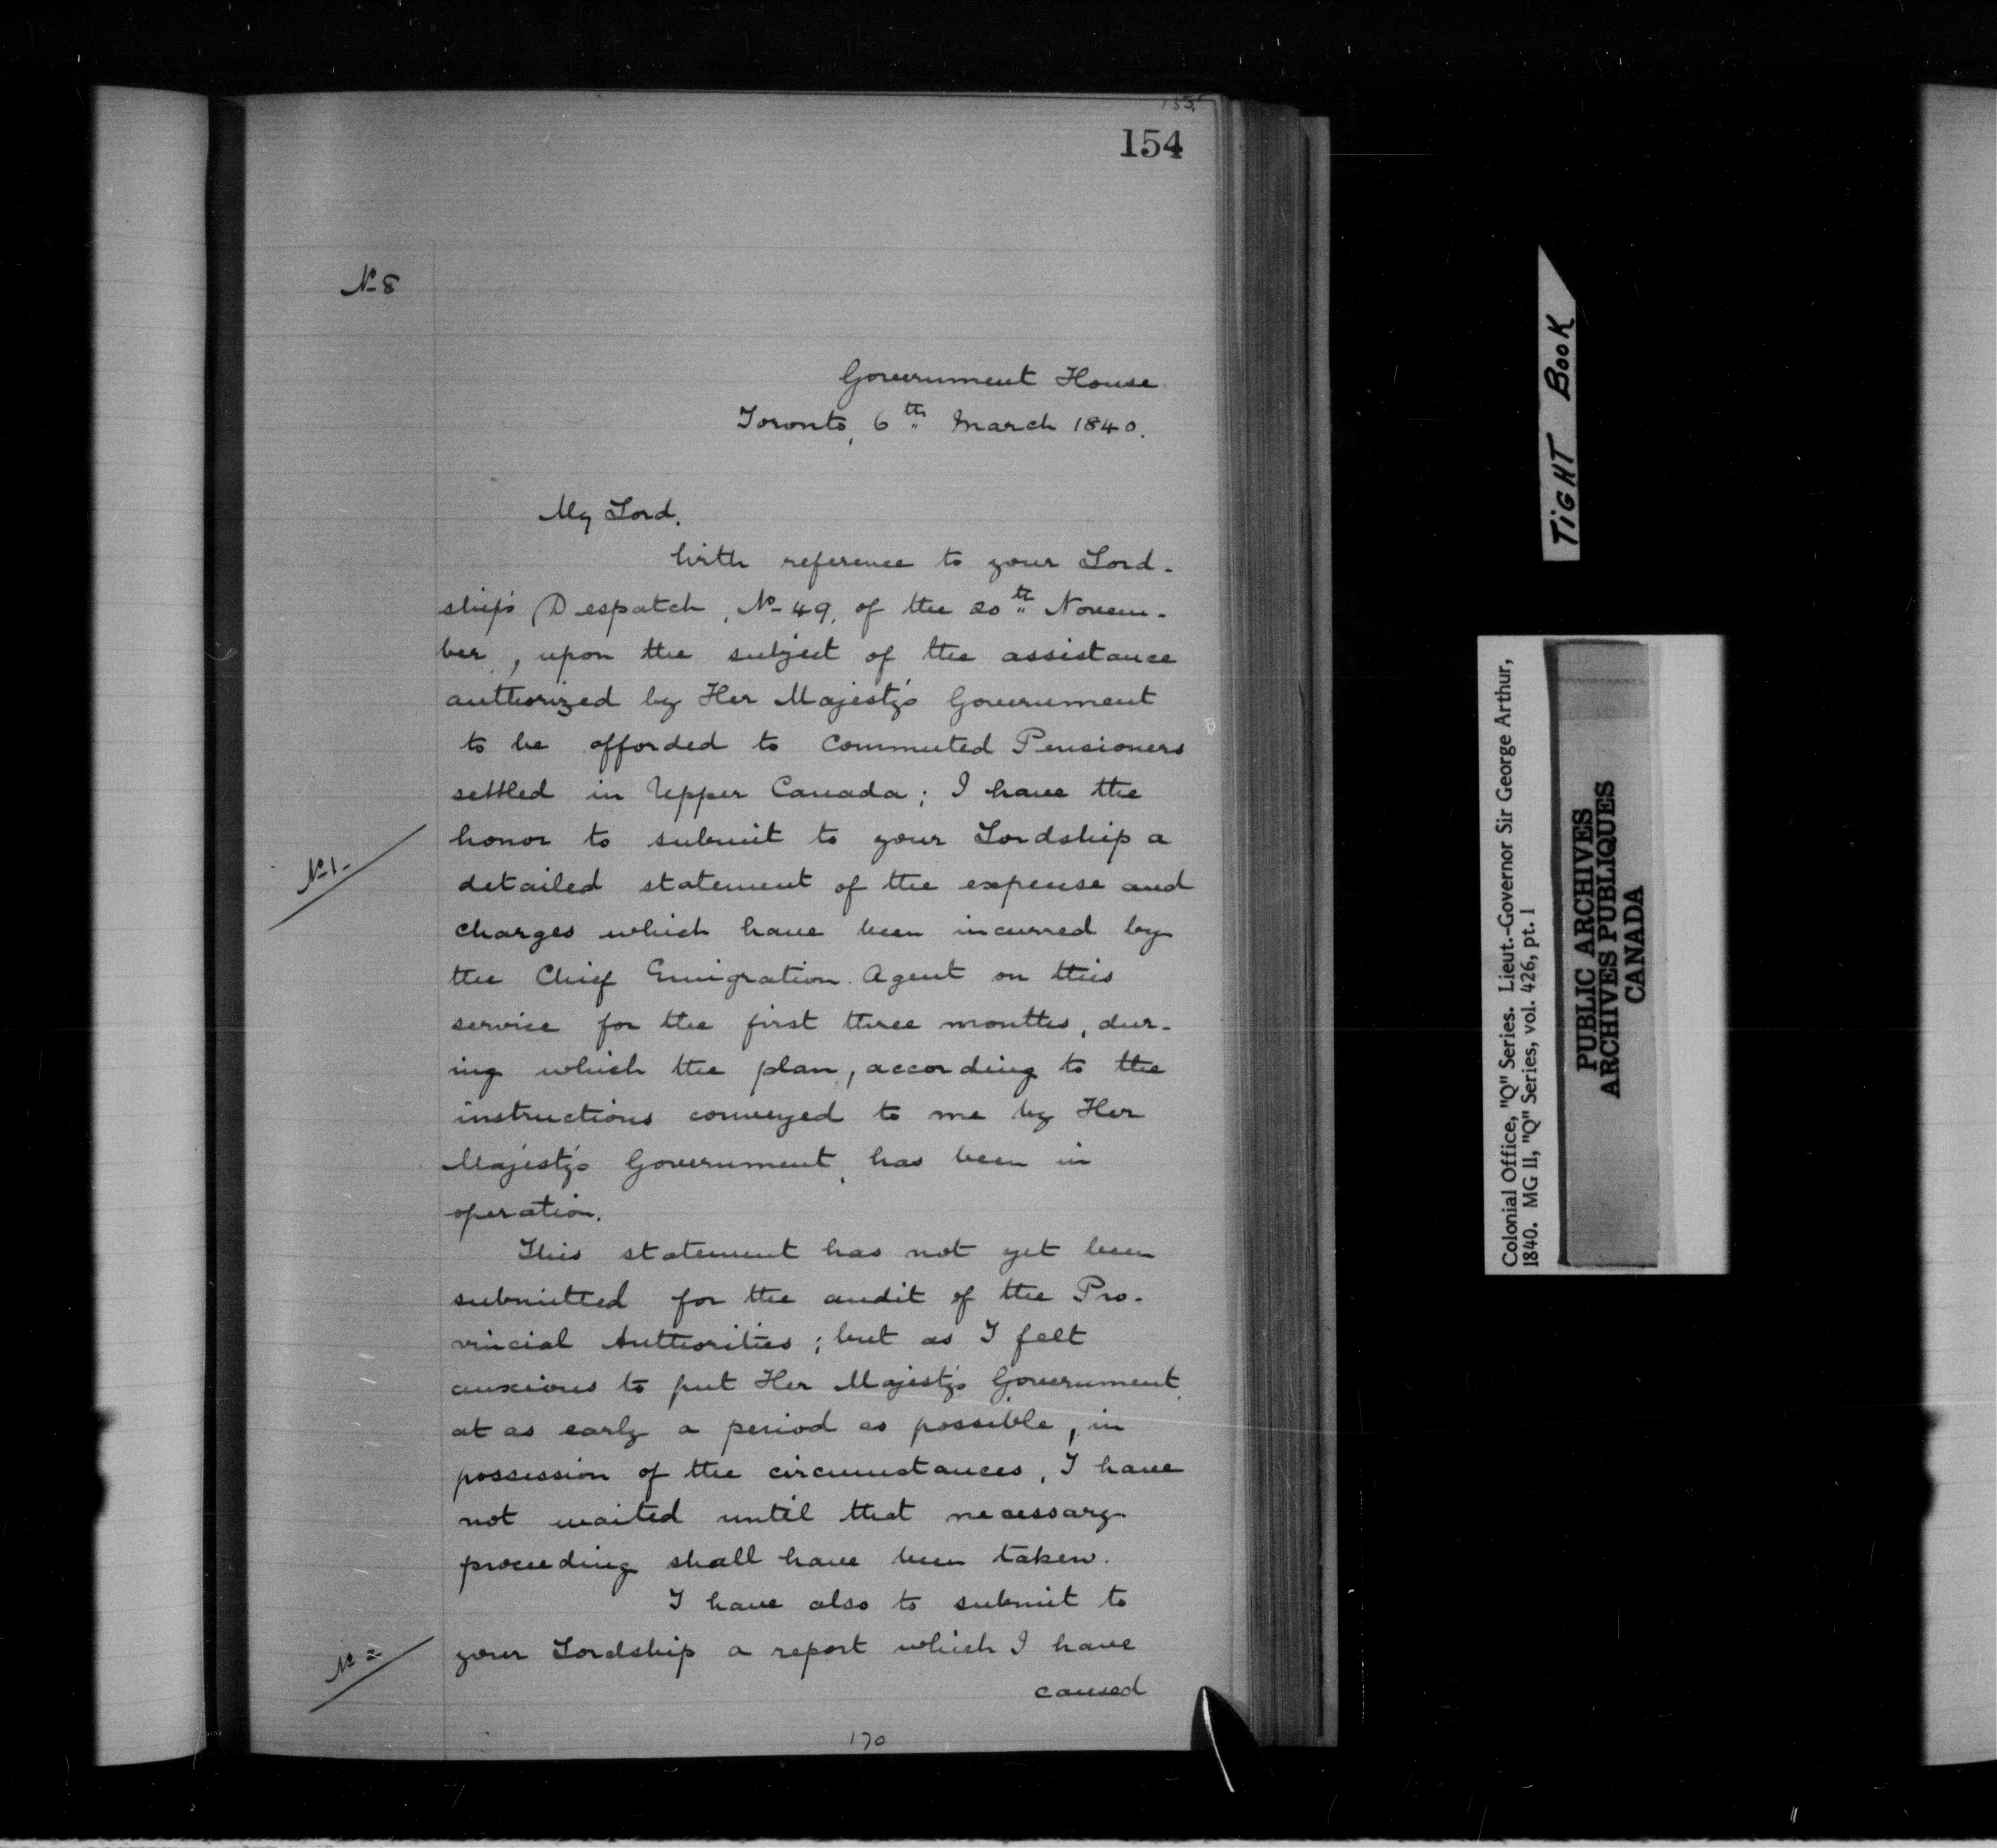 155.
154
No 8
Government House
Toronto, 6th March 1840.
My Lord.
With reference to your Lord-
ship's Despatch, No 49, of the 20th Novem-
ber, upon the subject of the assistance
authorized by Her Majesty's Government
to be afforded to Commuted Pensioners
settled in Upper Canada; I have the
honor to submit to your Lordship a
No 1-
detailed statement of the expense and
charges which have been incurred by
the Chief Emigration Agent on this
service for the first three months, dur-
ing which the plan, according to the
instructions conveyed to me by Her
Majesty's Government, has been in
operation.
This statement has not yet been
submitted for the audit of the Pro-
vincial Authorities; but as I felt
anxious to put Her Majesty's Government,
at as early a period as possible, in
possession of the circumstances, I have
not waited until that necessary
proceeding shall have been taken.
I have also to submit to
No 2
your Lordship a report which I have
caused
170
TIGHT BOOK
Colonial Office, "Q" Series. Lieut.-Governor Sir George Arthur,
1840. MG 11, "Q" Series, vol. 426, pt. 1
PUBLIC ARCHIVES
ARCHIVES PUBLIQUES
CANADA